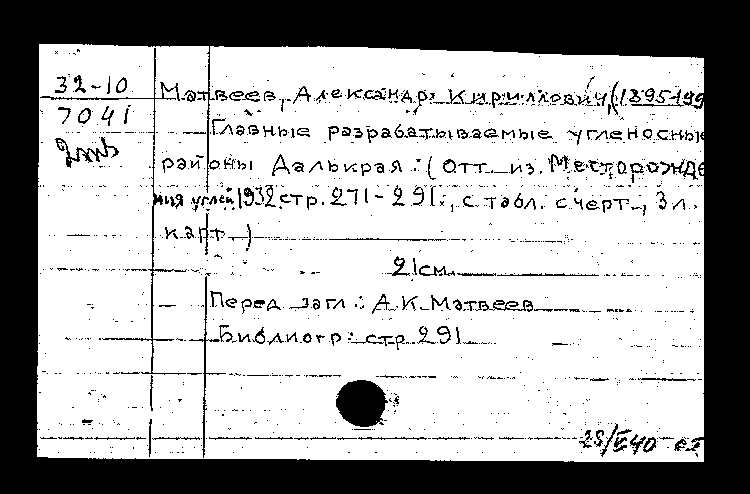 32-10
Матвеев, Александр Кириллович, (1895-199
7041
Главные разрабатываемые угленосные
районы Далькрая. (Отт. из. Месторожде
ния углей 1932 стр. 271-291., с табл. с черт., 3 л.
карт.)
21 см.
Перед загл.: А.К. Матвеев
Библиогр: стр 291
28/V 40